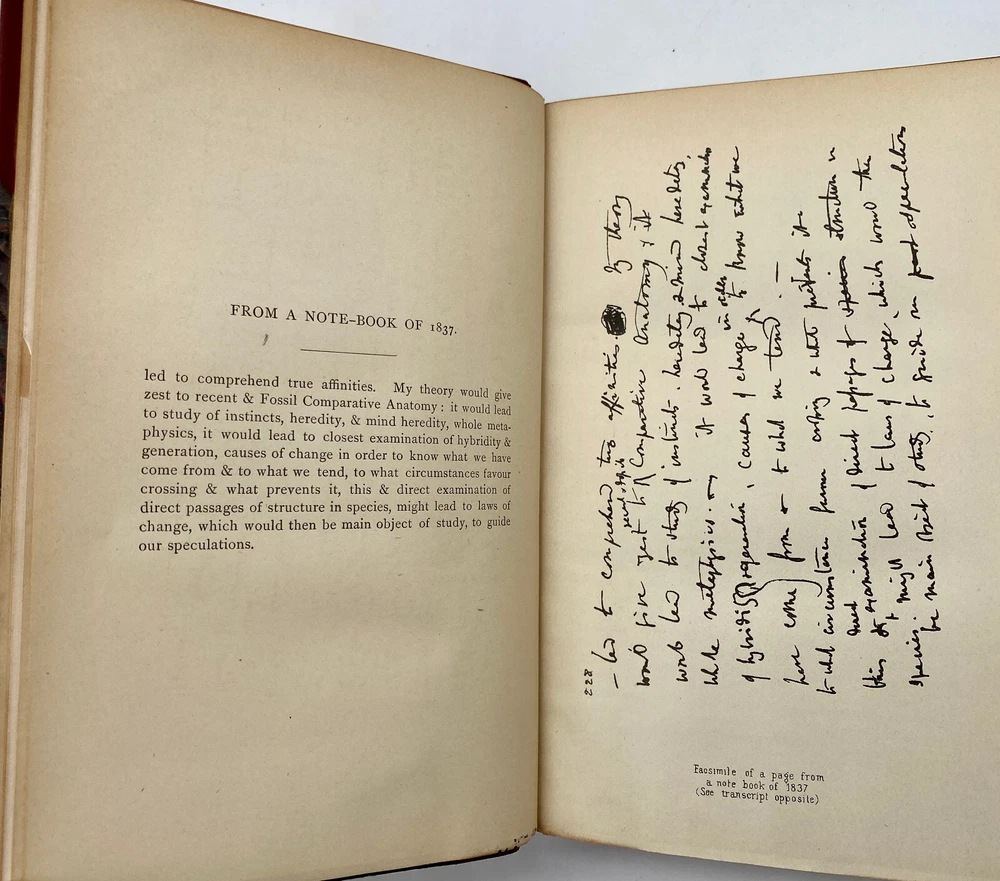 FROM A NOTE-BOOK OF 1837.
led to comprehend true affinities. My theory would give
zest to recent & Fossil Comparative Anatomy : it would lead
to study of instincts, heredity, & mind heredity, whole meta-
physics, it would lead to closest examination of hybridity &
generation, causes of change in order to know what we have
come from & to what we tend, to what circumstances favour
crossing & what prevents it, this & direct examination of
direct passages of structure in species, might lead to laws of
change, which would then be main object of study, to guide
our speculations.
228
— led to comprehend true affinities. My theory
would give zest to recent & fossil Comparative Anatomy, & it
would lead to study of instincts, heredity & mind heredity,
whole metaphysics. — it would lead to closest examination
of hybridity & generation, causes of change in order to know what we
have come from & to what we tend. —
to what circumstances favour crossing & what prevents it
this & direct examination of direct passages of structure in
species, might lead to laws of change, which would then
be main object of study, to guide our past speculations
Facsimile of a page from
a note book of 1837
(See transcript opposite)